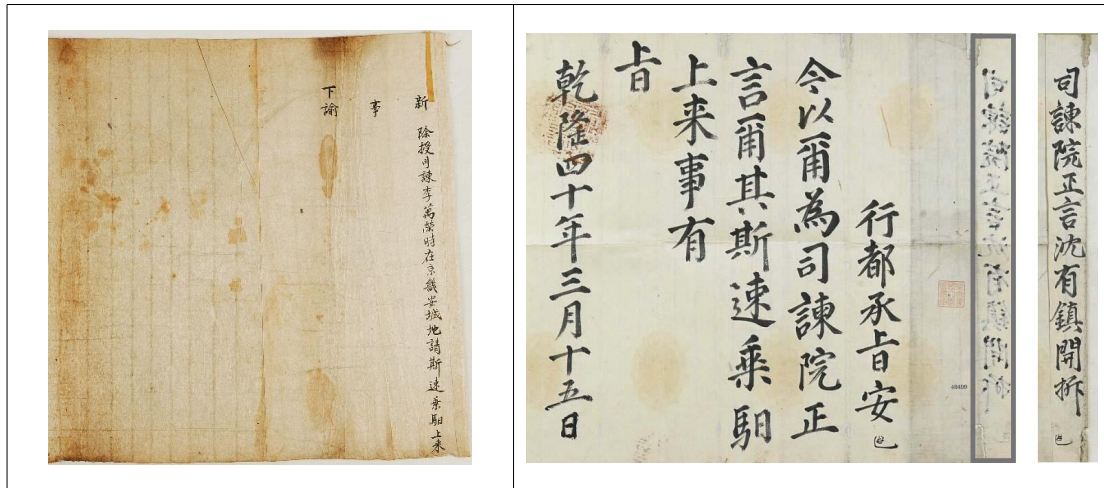 新 除授司諫李萬榮時在京畿安城地請斯速乘馹上來
事
下諭
司諫院正言沈有鎮開拆
行都承旨安
今以爾為司諫院正
言爾其斯速乘馹
上來事有
旨
乾隆四十年三月十五日